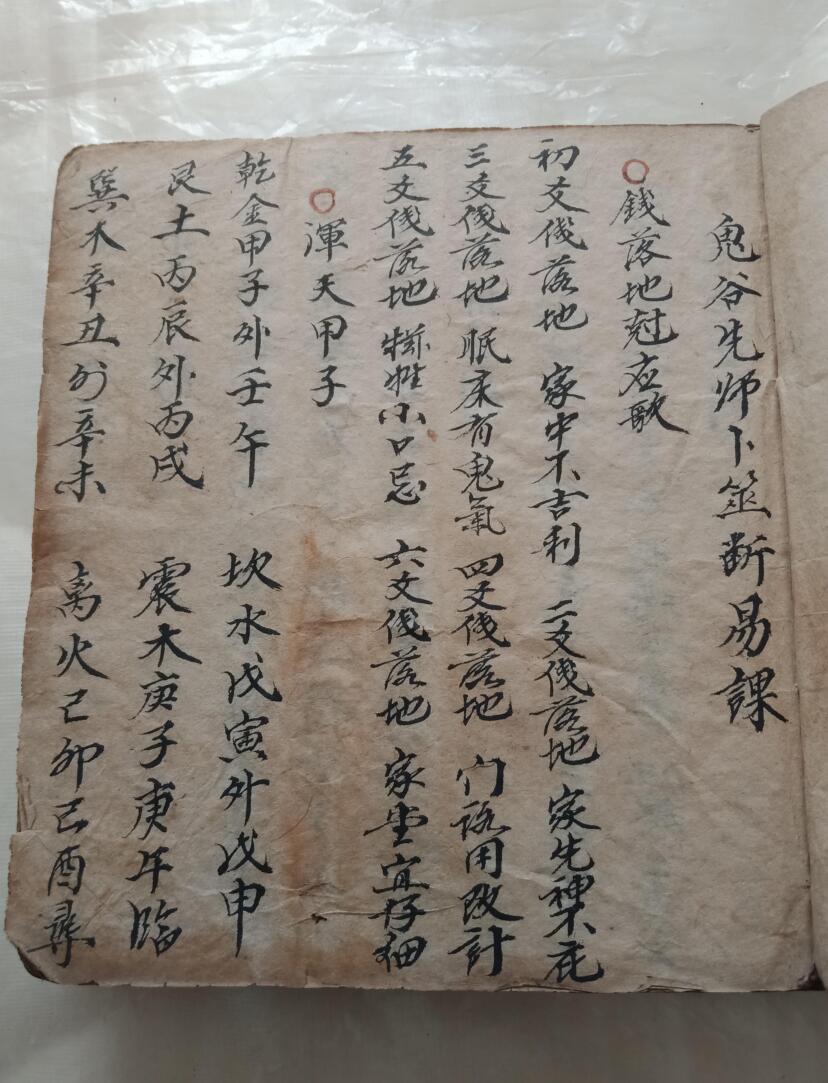 鬼谷先师卜筮断易課
錢落地尅应歌
初爻伐落地 家中不吉利 二爻伐落地 家先神不在
三爻伐落地 眠床有鬼氣 四爻伐落地 门路用改計
五爻伐落地 犠牲小口忌 六爻伐落地 家堂宜仔细
渾天甲子
乾金甲子外壬午 坎水戊寅外戊申
艮土丙辰外丙戌 震木庚子庚午臨
巽木辛丑外辛未 离火己卯己酉尋